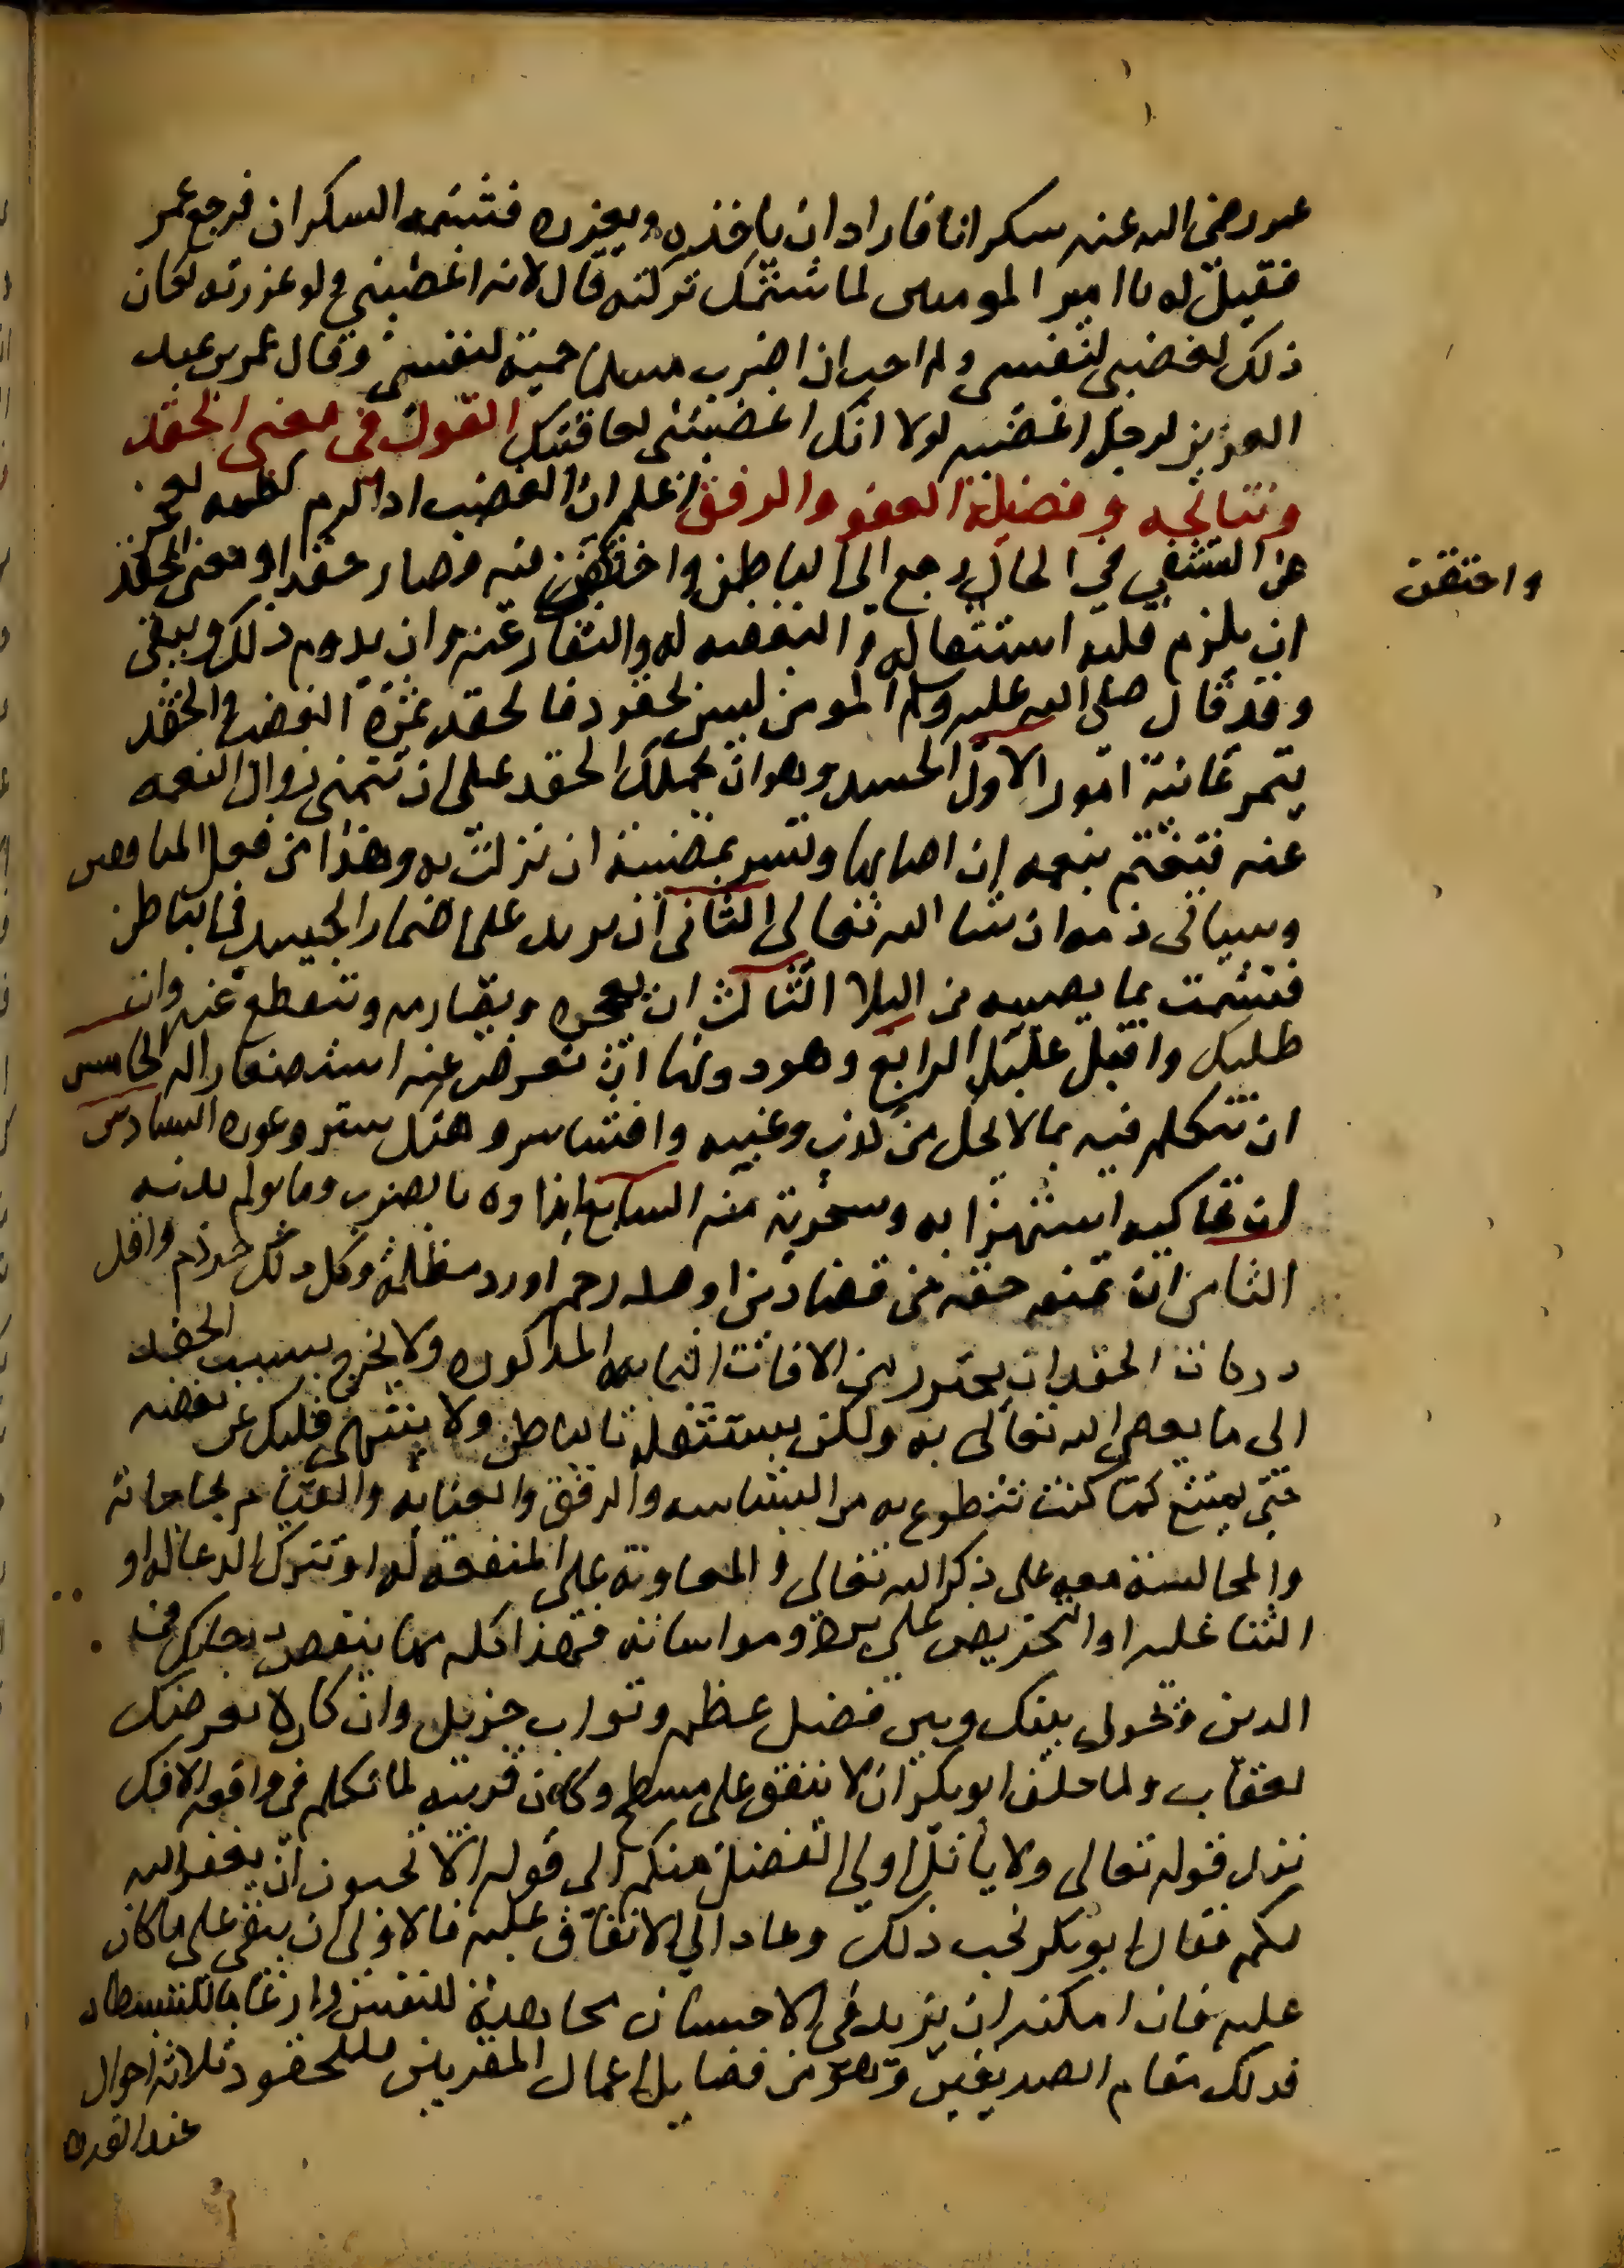 عمر رضى الله عنه سكرانا فاراد ان ياخذه ويعزره فشتمه السكران فرجع عمر
فقيل له يا امير المومنين لما شتمك تركته قال لانه اغضبني ولو عزرته لكان
ذلك لغضبي لنفسي ولم احب ان اضرب مسلما حمية لنفسي وقال عمر بن عبد
العزيز لرجل اغضبه لولا انك اغضبتني لعاقبتك القول في معنى الحقد
ونتائجه وفضيلة العفو والرفق اعلم ان الغضب اذا لزم كظمه لعجز
عن التشفي في الحال رجع الى الباطن واحتقن فيه فصار حقدا ومعنى الحقد
واحتقن
ان يلزم قلبه استثقاله والبغضه له والنفار عنه وان يدوم ذلك ويبقى
وقد قال صلى الله عليه وسلم المومن ليس بحقود فالحقد ثمرة الغضب والحقد
يثمر ثمانية امور الاول الحسد وهو ان يحملك الحقد على ان تتمنى زوال النعمه
عنه فتغتم بنعمه ان اصابها وتسر بمصيبة ان نزلت به وهذا من فعل المنافقين
وسياتى ذمه ان شا الله تعالى الثاني ان يزيد على اضمار الحسد في الباطن
فتشمت بما يصيبه من البلا الثالث ان يهجره ويصارمه وتنقطع عنه وان
طلبك واقبل عليك الرابع وهو دونها ان تعرض عنه استصغارا له الخامس
ان تتكلم فيه بما لا يحل من كذب وغيبه وافشا سر وهتك ستر وعوره السادس
ان تحاكيه استهزا به وسخرية منه السابع ايذاوه بالضرب وما يولم بدنه
الثامن ان تمنعه حقه من قضا دين او صله رحم او رد مظلمة وكل ذلك حرام واقل
درجات الحقد ان يحترز من الافات الثمانيه المذكوره ولا يخرج بسبب الحقد
الى ما يعصى الله تعالى به ولكن يستثقله بالباطن ولا ينتهى قلبك عن بغضه
حتى يمتنع كما كنت تتطوع به من البشاشه والرفق والعنايه والقيام بحاجاته
والمجالسة معه على ذكر الله تعالى والمعاونة على المنفعه له او تترك الدعا له او
الثنا عليه او التحريص على بره ومواساته فهذا كله مما ينقص درجتك في
الدين وتحول بينك وبين فضل عظيم وثواب جزيل وان كان لا يعرضك
لعقاب ولما حلف ابو بكر ان لا ينفق على مسطح وكان قريبه لما تكلم في واقعه الافك
نزل قوله تعالى ولا ياتل اولي الفضل منكم الى قوله الا تحبون ان يغفر الله
لكم فقال ابو بكر نحب ذلك وعاد الى الانفاق عليه فالاولى ان يبقى على ما كان
عليه فان امكنه ان يزيد في الاحسان مجاهدة للنفس وارغاما للشيطان
فذلك مقام الصديقين وهو من فضايل اعمال المقربين فللحقود ثلاثة احوال
عند القدره